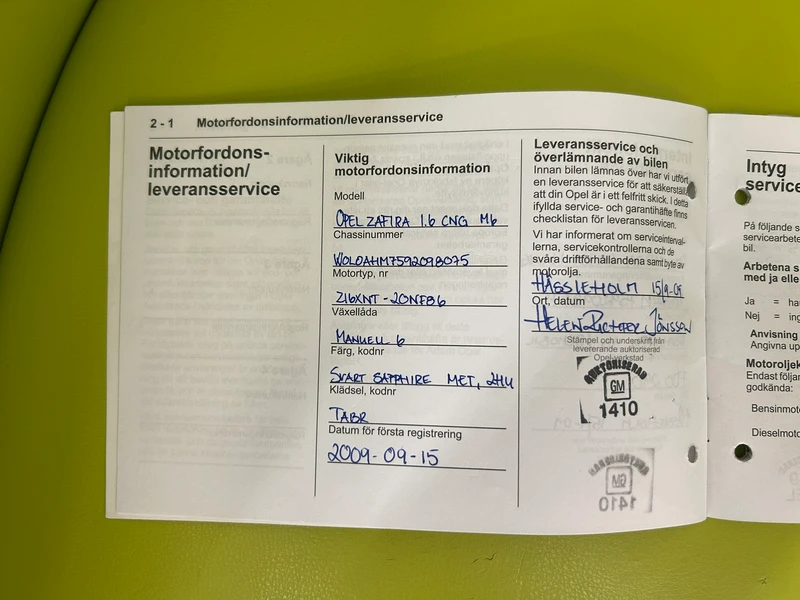 2 - 1 Motorfordonsinformation/leveransservice
Motorfordons-
information/
leveransservice
Viktig
motorfordonsinformation
Modell
OPEL ZAFIRA 1.6 CNG M6
Chassinummer
W0L0AHM7592098075
Motortyp, nr
Z16XNT - 20NF86
Växellåda
MANUELL 6
Färg, kodnr
SVART SAPPHIRE MET, 2HU
Klädsel, kodnr
TABR
Datum för första registrering
2009-09-15
Leveransservice och
överlämnande av bilen
Innan bilen lämnas över har vi utfört
en leveransservice för att säkerställa
att din Opel är i ett felfritt skick. I detta
ifyllda service- och garantihäfte finns
checklistan för leveransservicen.
Vi har informerat om serviceinterval-
lerna, servicekontrollerna och de
svåra driftförhållandena samt byte av
motorolja.
HÄSSLEHOLM 15/9-09
Ort, datum
HELEN RICHTER JÖNSSON
Stämpel och underskrift från
levererande auktoriserad
Opel-verkstad
AUKTORISERAD
GM
1410
Intyg
service
På följande s
servicearbete
bil.
Arbetena s
med ja elle
Ja = ha
Nej = ing
Anvisning
Angivna up
Motoroljek
Endast följan
godkända:
Bensinmoto
Dieselmoto